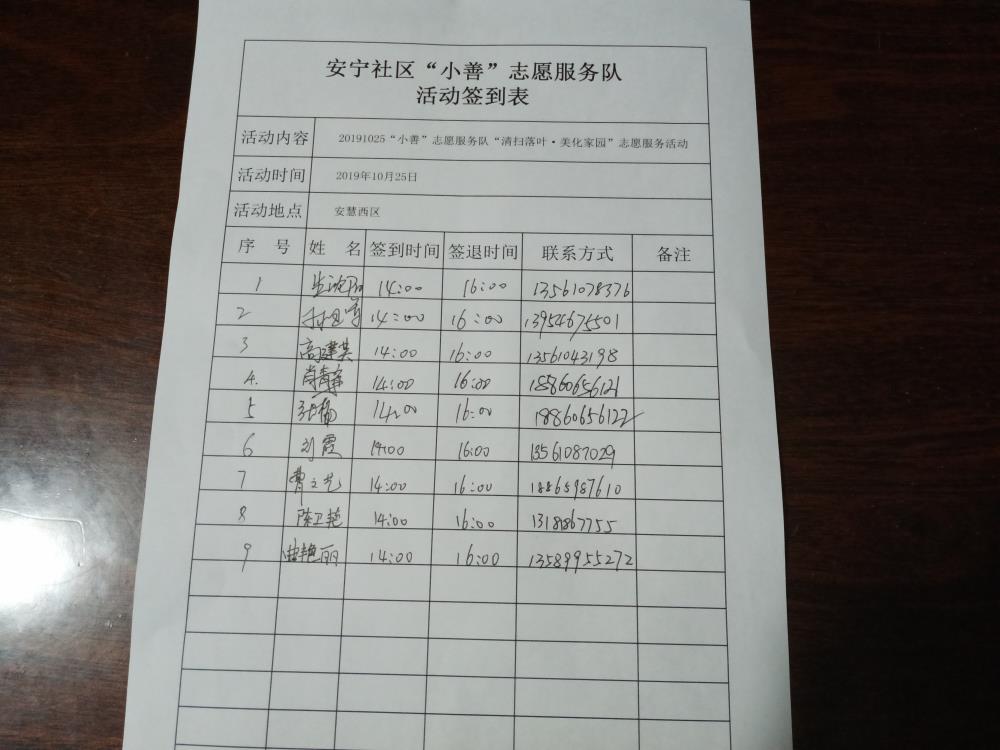 安宁社区“小善”志愿服务队
活动签到表
活动内容 20191025“小善”志愿服务队“清扫落叶·美化家园”志愿服务活动
活动时间 2019年10月25日
活动地点 安慧西区
序 号 姓 名 签到时间 签退时间 联系方式 备注
1 14:00 16:00 13561078376
2 14:00 16:00 13954675501
3 高建英 14:00 16:00 13561043198
4. 肖青宁 14:00 16:00 18860656121
5 张梅 14:00 16:00 18860656122
6 刘霞 14:00 16:00 13561087029
7 曹立艺 14:00 16:00 18865987610
8 陈卫艳 14:00 16:00 1318867755
9 曲艳丽 14:00 16:00 13589955272